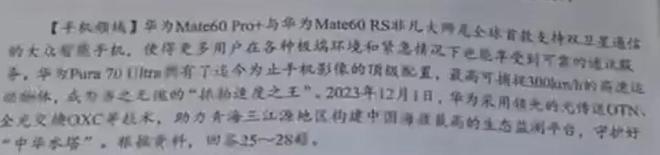 【手机领域】华为Mate60 Pro+与华为Mate60 RS非凡大师是全球首款支持双卫星通信
的大众智能手机，使得更多用户在各种极端环境和紧急情况下也能享受到可靠的通讯服
务，华为Pura 70 Ultra拥有了迄今为止手机影像的顶级配置，最高可捕捉300km/h的高速运
动物体，成为当之无愧的“抓拍速度之王”。2023年12月1日，华为采用领先的光传送OTN、
全光交换OXC等技术，助力青海三江源地区构建中国海拔最高的生态监测平台，守护好
“中华水塔”。根据资料，回答25～28题。